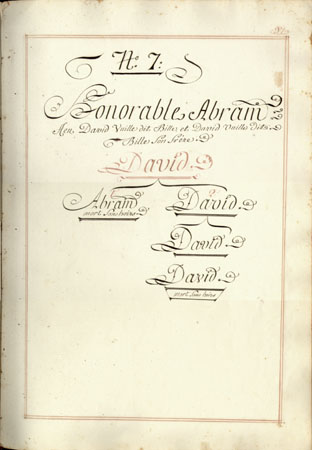 N.º 7:
Honorable Abram
feu David Vuille dit Bille et David Vuille dit
Bille son frère
David
Abram David
mort sans hoirs
David
David
mort sans hoirs